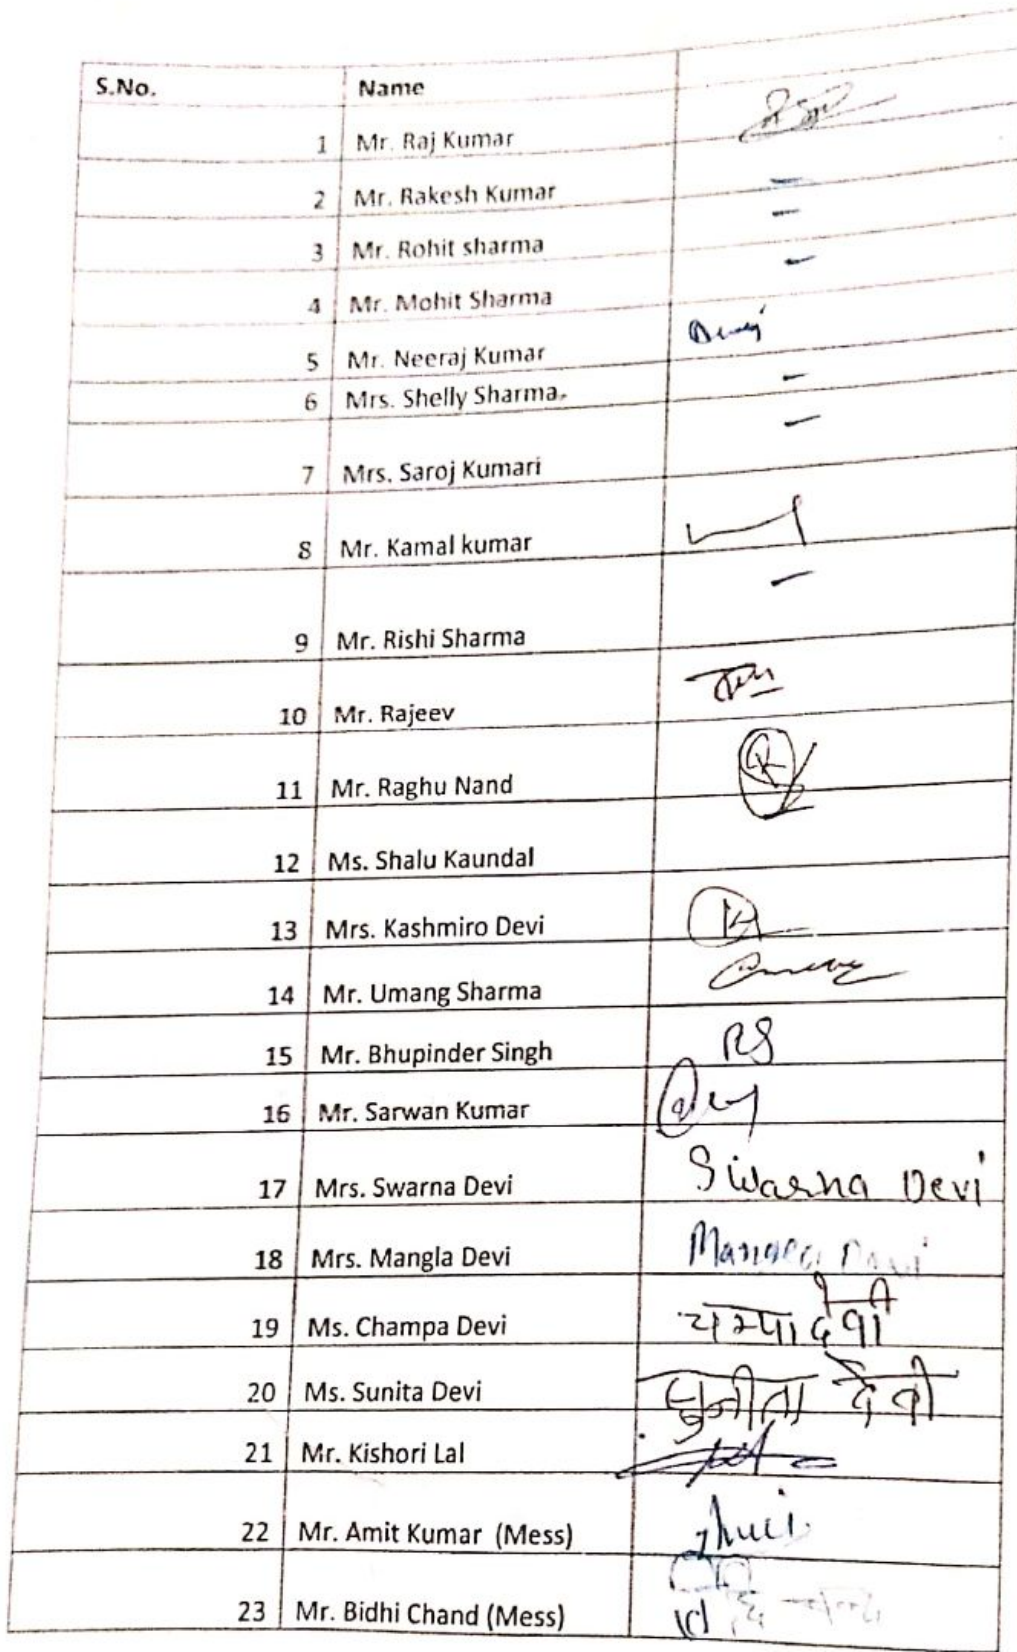 S.No. Name
1 Mr. Raj Kumar
2 Mr. Rakesh Kumar -
3 Mr. Rohit sharma -
4 Mr. Mohit Sharma -
5 Mr. Neeraj Kumar
6 Mrs. Shelly Sharma. -
7 Mrs. Saroj Kumari -
8 Mr. Kamal kumar
9 Mr. Rishi Sharma -
10 Mr. Rajeev
11 Mr. Raghu Nand
12 Ms. Shalu Kaundal
13 Mrs. Kashmiro Devi
14 Mr. Umang Sharma
15 Mr. Bhupinder Singh
16 Mr. Sarwan Kumar
17 Mrs. Swarna Devi Swarna Devi
18 Mrs. Mangla Devi Mangla Devi
19 Ms. Champa Devi चम्पा देवी
20 Ms. Sunita Devi सुनीता देवी
21 Mr. Kishori Lal
22 Mr. Amit Kumar (Mess)
23 Mr. Bidhi Chand (Mess)